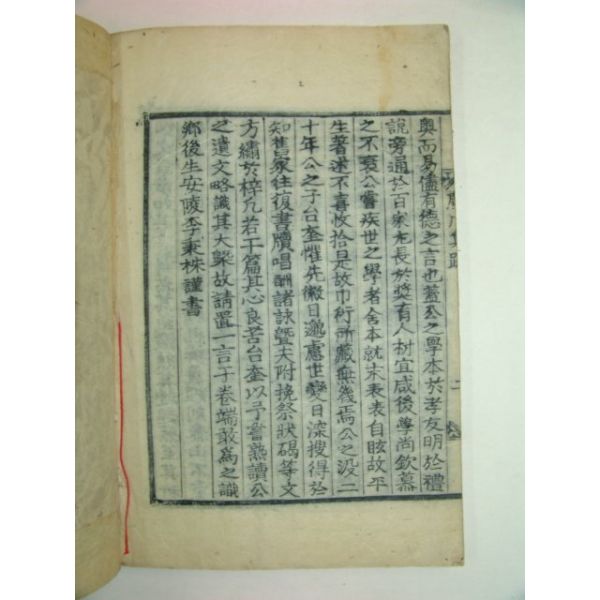 奧而易儘有德之言也蓋公之學本於孝友明於禮
說旁通於百家尤長於奬有人材宜咸後學尚欽慕
之不衰公嘗疾世之學者舍本就末表表自眩故平
生著述不喜收拾是故巾衍所藏無幾焉公之沒二
十年公之子台奎懼先徽日邈慮世變日深搜得於
知舊家往復書牘唱酬諸詩曁夫附挽祭狀碣等文
方繡於梓凡若干篇其心良苦台奎以予嘗熟讀公
之遺文略識其大槩故請置一言于卷端敢爲之識
鄕後生安陵李秉株謹書